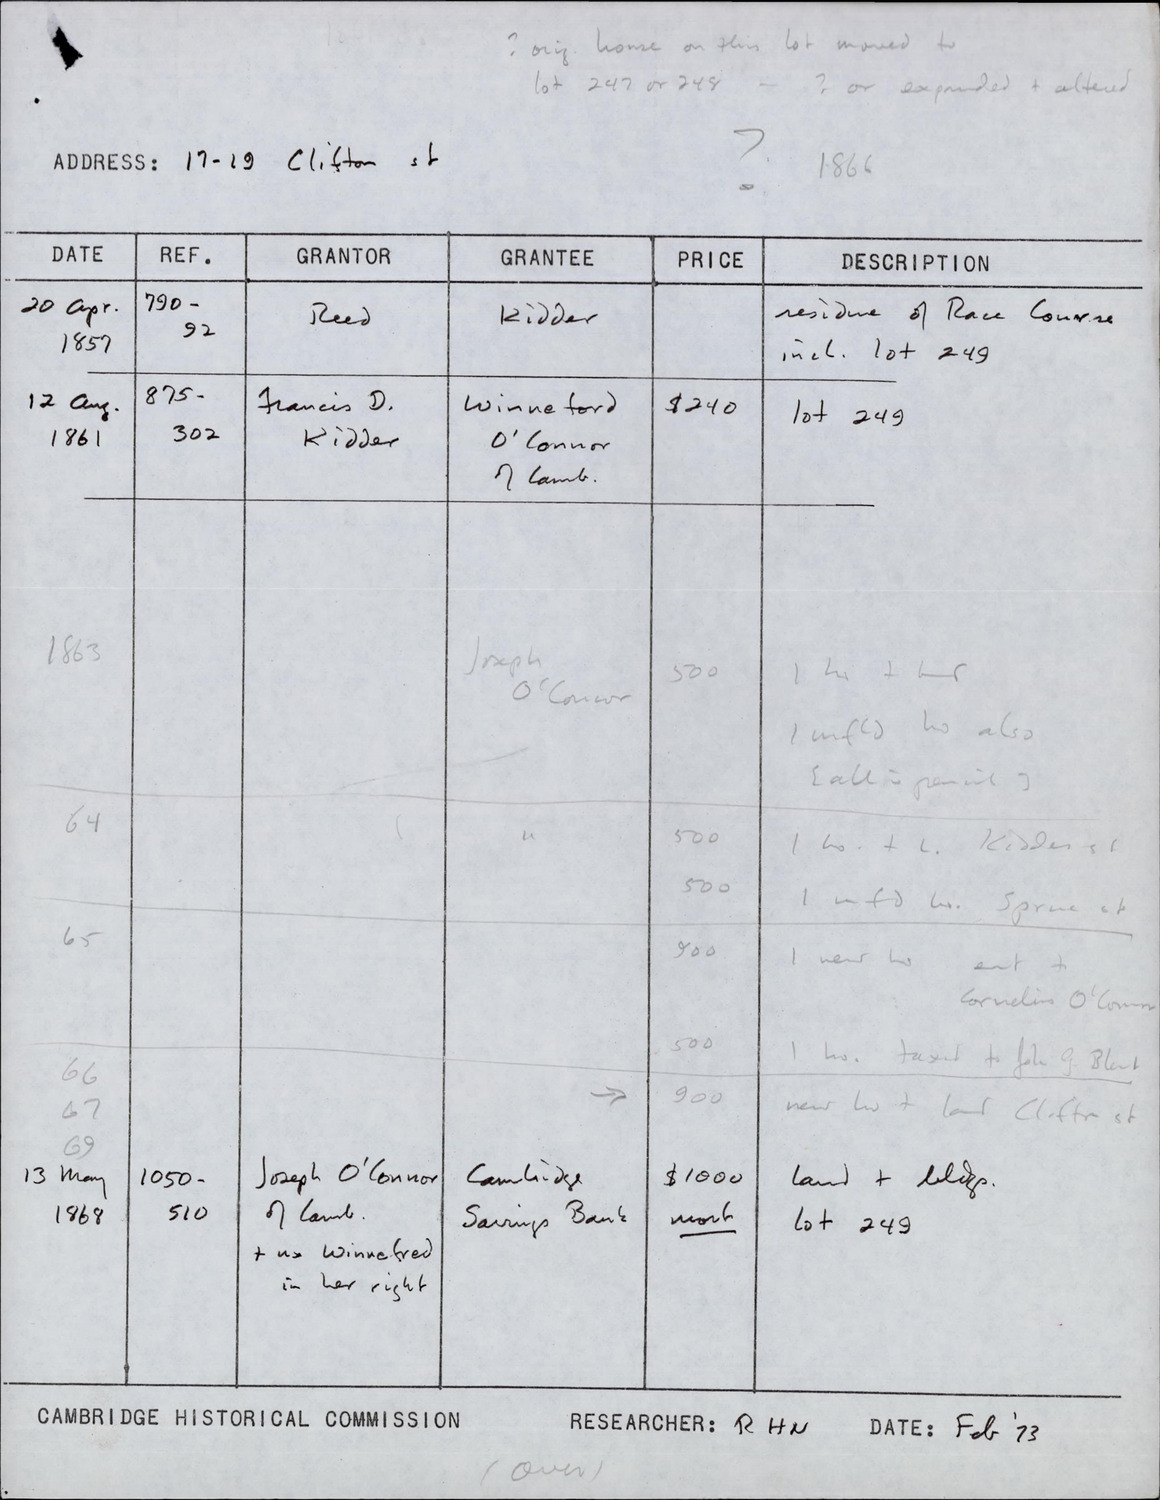 ? orig. house on this lot moved to
lot 247 or 248 — ? or expanded + altered
ADDRESS: 17-19 Clifton st
? 1866
DATE REF. GRANTOR GRANTEE PRICE DESCRIPTION
20 Apr. 790- Reed Kidder residue of Race Course
1857 92 incl. lot 249
12 Aug. 875- Francis D. Winneford $240 lot 249
1861 302 Kidder O'Connor
of Camb.
1863 Joseph 500 1 ho + land
O'Connor
1 unf'd ho also
[all in pencil]
64 " 500 1 ho. + l. Kidder st
500 1 unf'd ho. Spruce st
65 900 1 new ho ent to
Cornelius O'Connor
500 1 ho. taxed to John G.
66
67 → 900 new ho + land Clifton st
69
13 May 1050- Joseph O'Connor Cambridge $1000 land + bldgs.
1868 510 of Camb. Savings Bank mort lot 249
+ ux Winnefred
in her right
CAMBRIDGE HISTORICAL COMMISSION RESEARCHER: RHN DATE: Feb '73
(over)